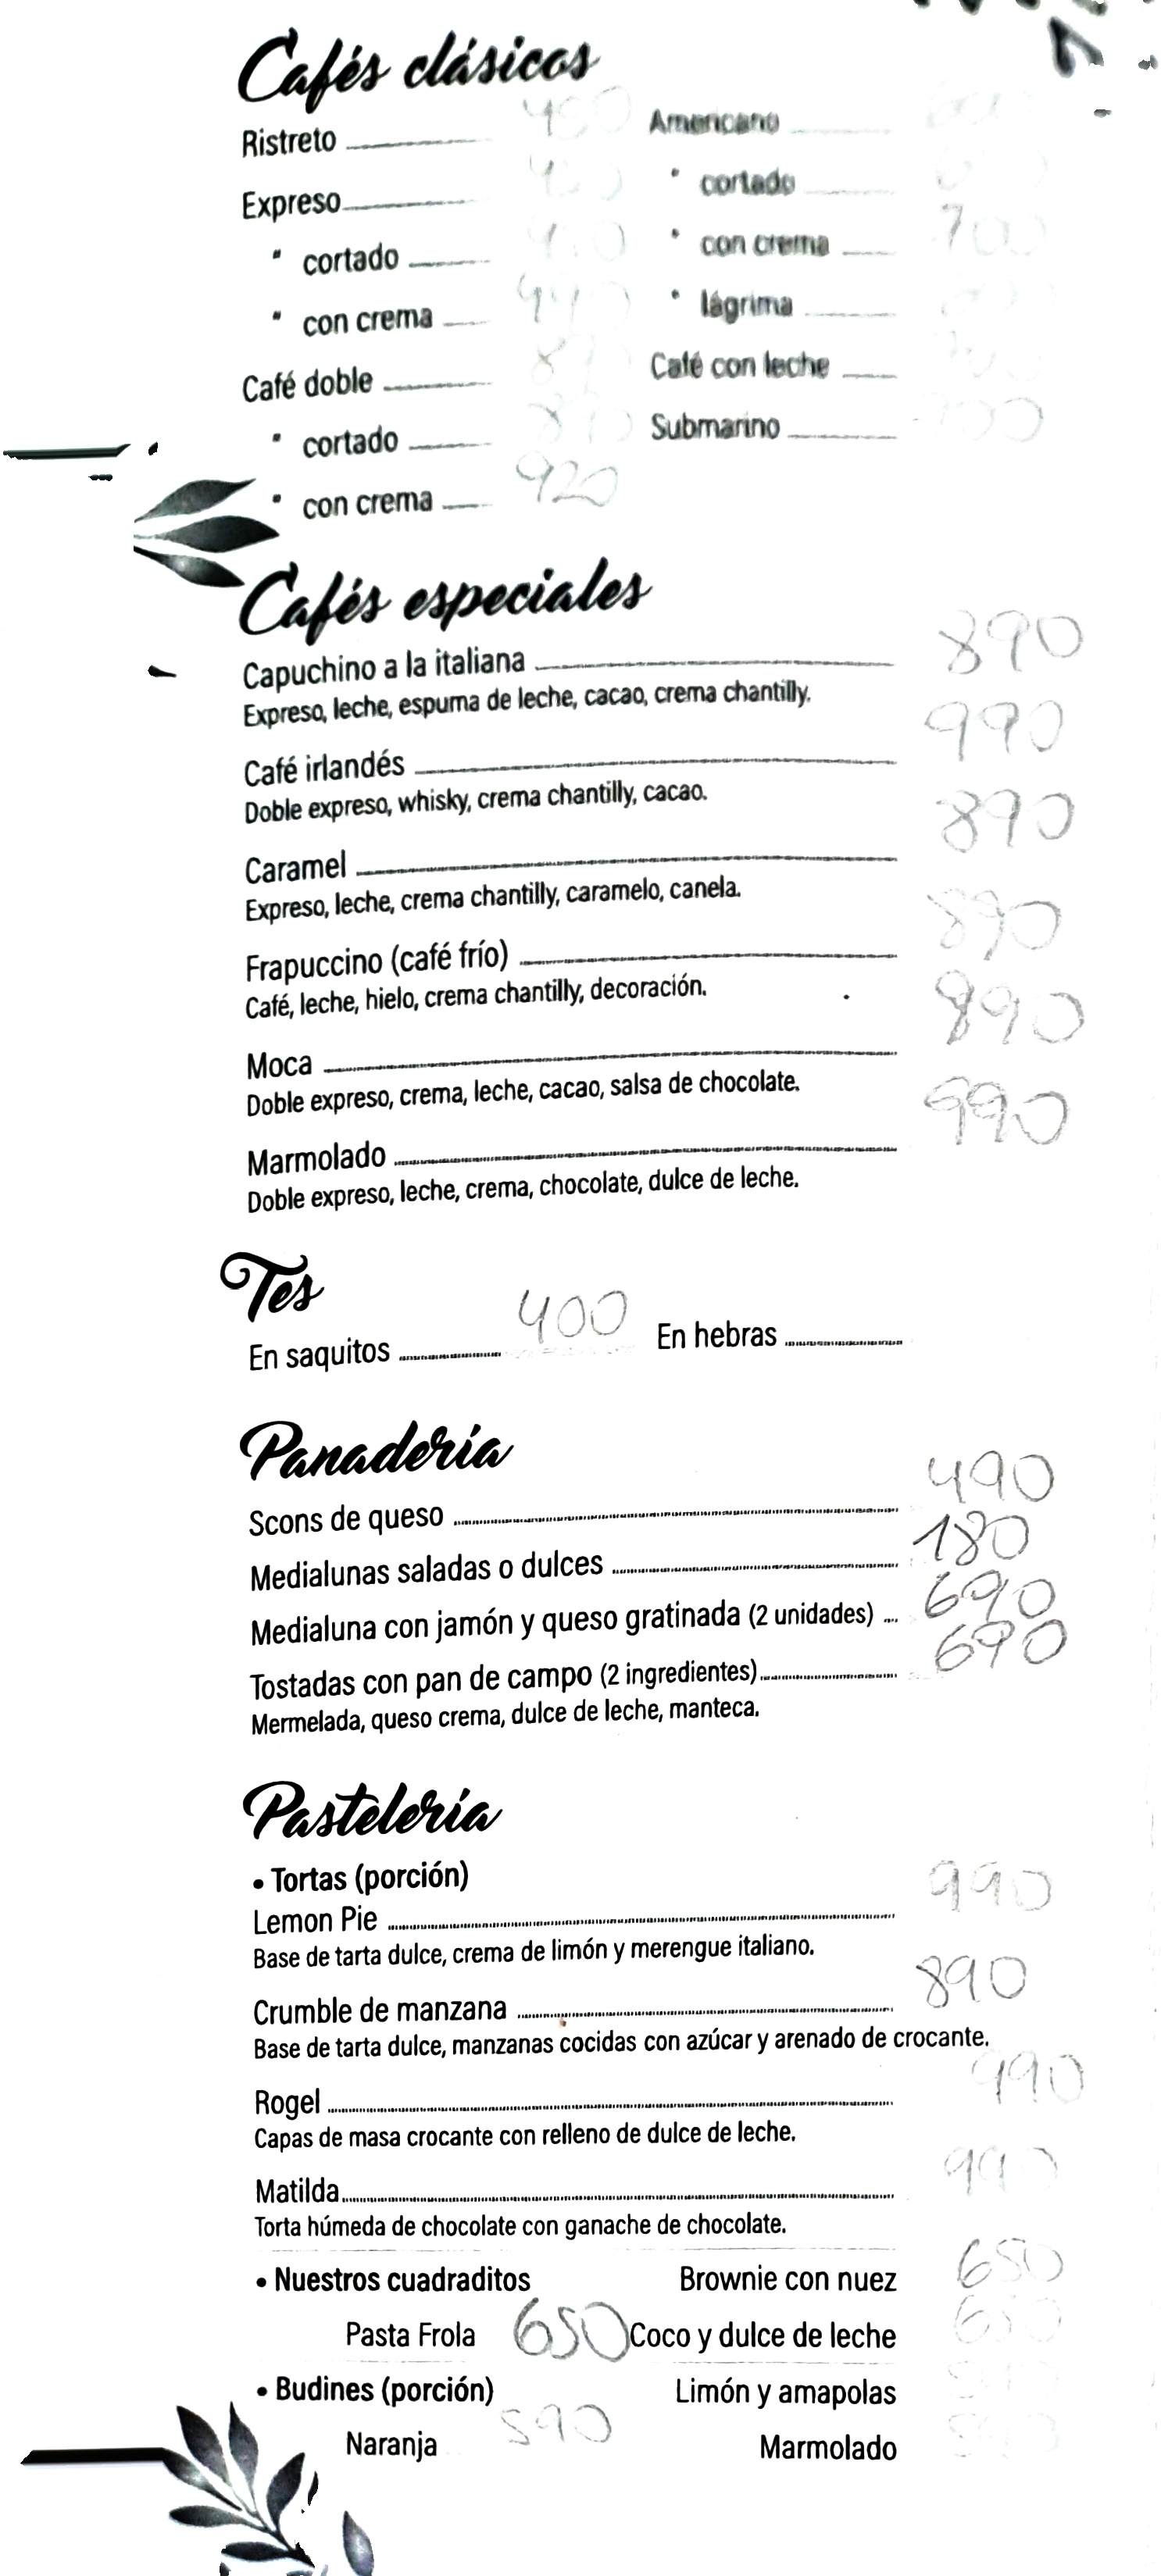 Cafés clásicos
Ristreto
Expreso
" cortado
" con crema
Café doble
" cortado
" con crema 920
Americano
" cortado
" con crema 700
" lágrima
Café con leche
Submarino
Cafés especiales
Capuchino a la italiana 890
Expreso, leche, espuma de leche, cacao, crema chantilly.
Café irlandés 990
Doble expreso, whisky, crema chantilly, cacao.
Caramel 890
Expreso, leche, crema chantilly, caramelo, canela.
Frapuccino (café frío) 890
Café, leche, hielo, crema chantilly, decoración.
Moca 890
Doble expreso, crema, leche, cacao, salsa de chocolate.
Marmolado 990
Doble expreso, leche, crema, chocolate, dulce de leche.
Tes
En saquitos 400 En hebras
Panadería
Scons de queso 490
Medialunas saladas o dulces 180
Medialuna con jamón y queso gratinada (2 unidades) 690
Tostadas con pan de campo (2 ingredientes) 690
Mermelada, queso crema, dulce de leche, manteca.
Pastelería
• Tortas (porción)
Lemon Pie 990
Base de tarta dulce, crema de limón y merengue italiano.
Crumble de manzana 890
Base de tarta dulce, manzanas cocidas con azúcar y arenado de crocante.
Rogel 990
Capas de masa crocante con relleno de dulce de leche.
Matilda 990
Torta húmeda de chocolate con ganache de chocolate.
• Nuestros cuadraditos Brownie con nuez 650
Pasta Frola 650 Coco y dulce de leche 650
• Budines (porción) Limón y amapolas
Naranja 590 Marmolado